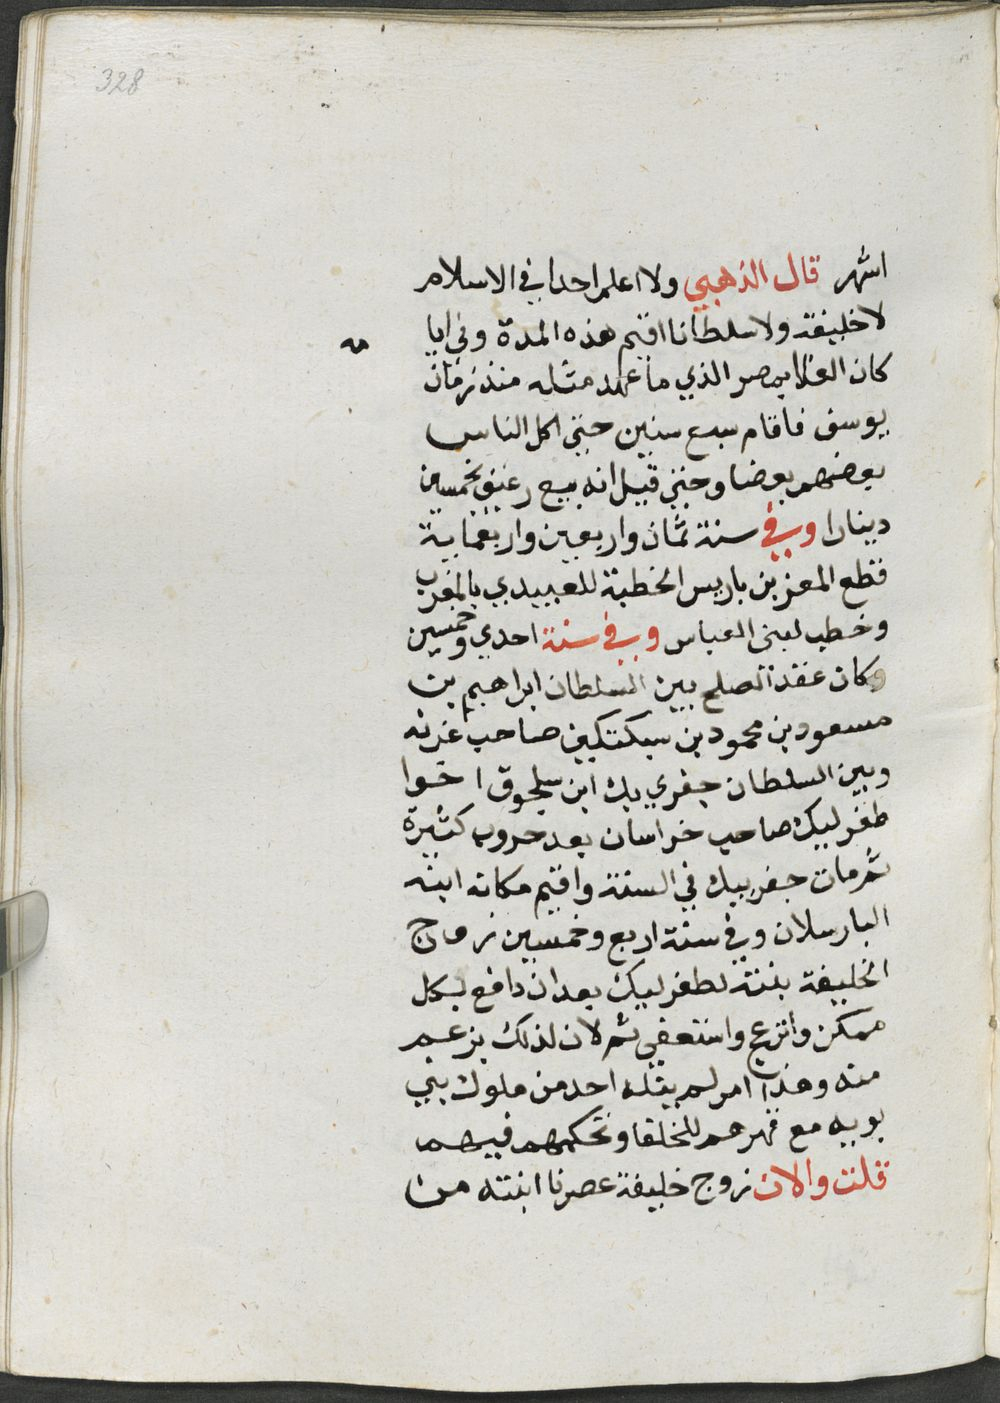 328
اشهر قال الذهبي ولا اعلم احدا في الاسلام
لا خليفة ولا سلطانا اقيم هذه المدة وفي ايا مه
كان الغلا بمصر الذي ما عهد مثله منذ زمان
يوسف فاقام سبع سنين حتي اكل الناس
بعضهم بعضا وحتي قيل انه بيع رغيف بخمسين
دينارا وفي سنة ثمان واربعين واربعماية
قطع المعز بن باريس الخطبة للعبيدي بالمغرب
وخطب لبني العباس وفي سنة احدي وخمسين
وكان عقد الصلح بين السلطان ابراهيم بن
مسعود بن محمود بن سبكتكين صاحب غزنه
وبين السلطان جفري بك ابن سلجوق اخوا
طغرلبيك صاحب خراسان بعد حروب كثيرة
ثم مات جفربيك في السنة واقيم مكانه ابنه
البارسلان وفي سنة اربع وخمسين زوج
الخليفة بنته لطغرلبيك بعد ان دافع بكل
ممكن وانزعج واستعفي ثم لان لذلك بزعم
منه وهذا امر لم ينله احد من ملوك بني
بويه مع قهرهم للخلفا وتحكمهم فيهم
قلت والان زوج خليفة عصرنا ابنته من